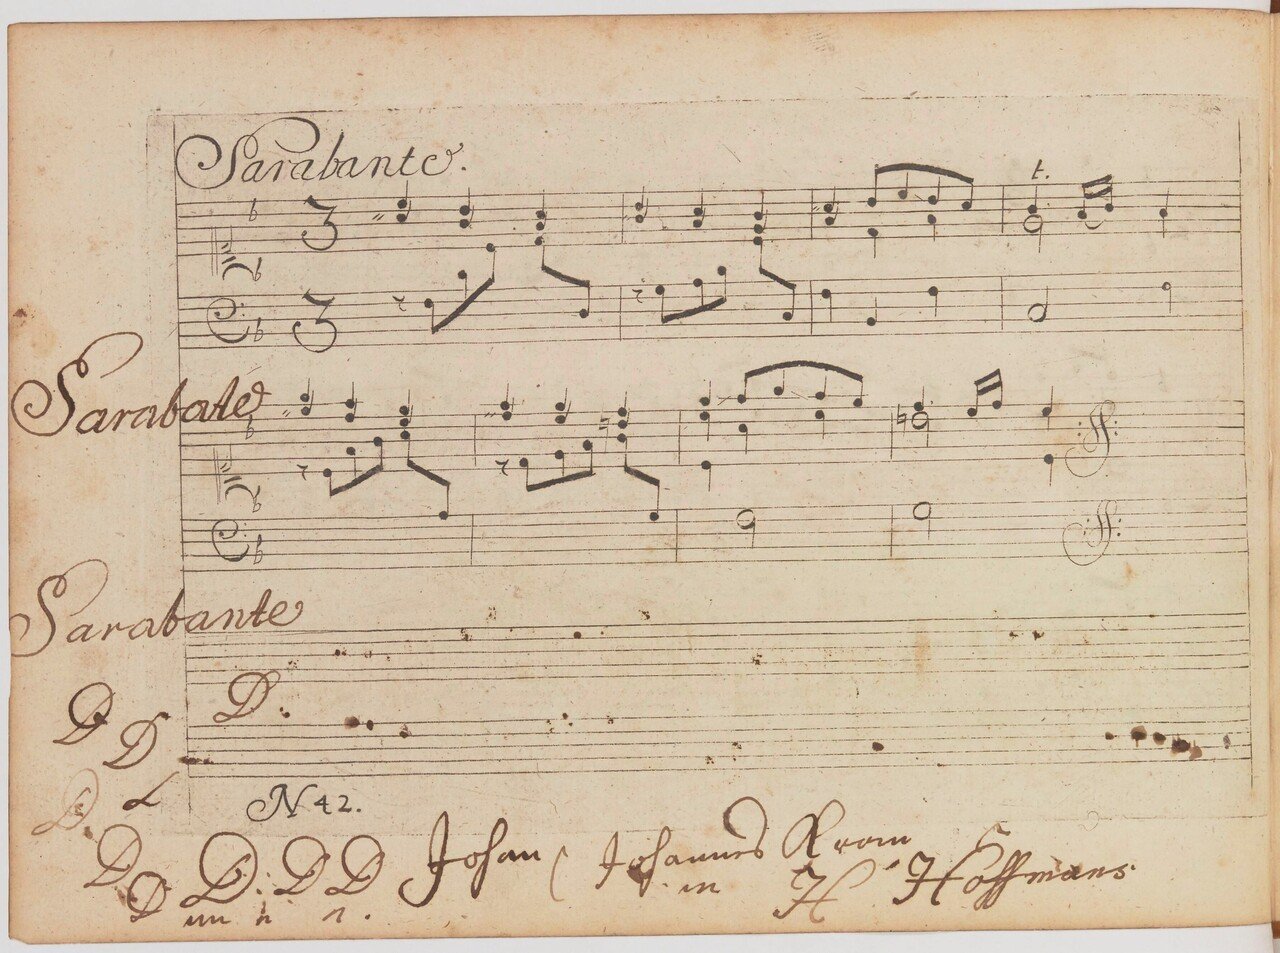 Sarabante.
3
t.
3
Sarabate
Sarabante
D.
D
D
N 42.
D.
D D: D D Johan Johannes Krom
D
in H Hoffmans
n.